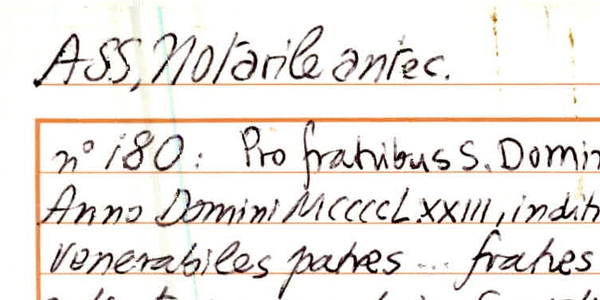 ASS, Notarile antec.
n° 180: Pro fratribus S. Domin
Anno Domini MCCCCLXXIII, indit
venerabiles patres ... fratres